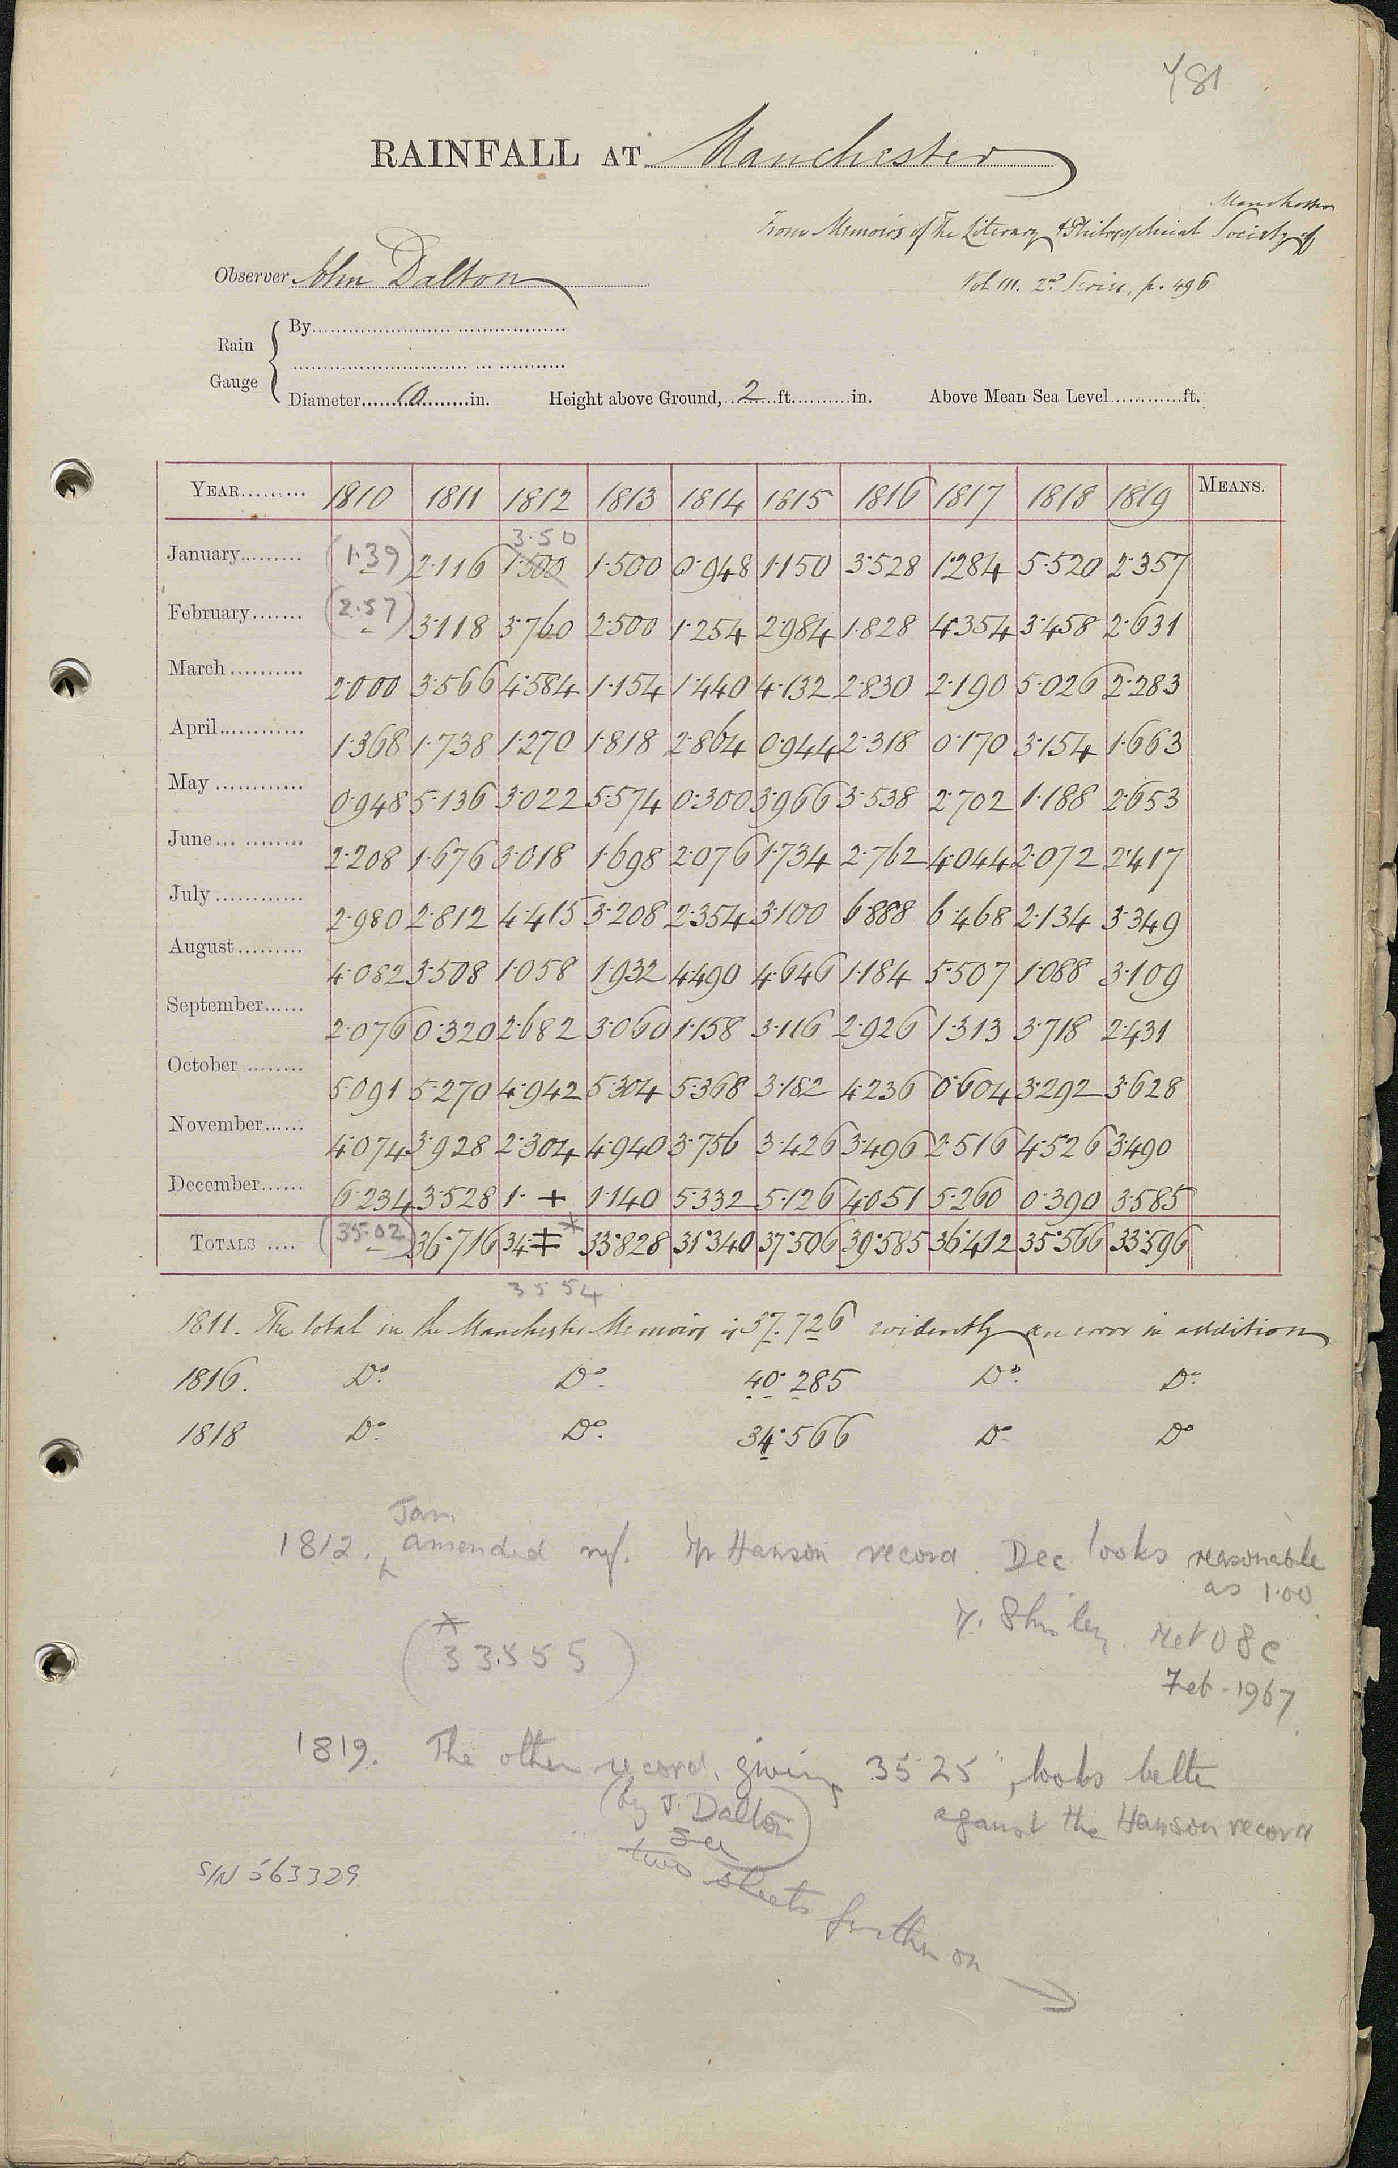 481
RAINFALL AT Manchester
Manchester
From Memoirs of the Literary & Philosophical Society of
Vol III. 2nd Series, p. 496
Observer John Dalton
Rain Gauge
By
Diameter 10 in. Height above Ground, 2 ft. in. Above Mean Sea Level ft.
YEAR 1810 1811 1812 1813 1814 1815 1816 1817 1818 1819 MEANS.
3.50
January (1.39) 2.116 1.500 1.500 0.948 1.150 3.528 1.284 5.520 2.357
February (2.57) 3.118 3.760 2.500 1.254 2.984 1.828 4.354 3.458 2.631
March 2.000 3.566 4.584 1.154 1.440 4.132 2.830 2.190 5.026 2.283
April 1.368 1.738 1.270 1.818 2.864 0.944 2.318 0.170 3.154 1.663
May 0.948 5.136 3.022 5.574 0.300 3.966 3.538 2.702 1.188 2.653
June 2.208 1.676 3.018 1.698 2.076 1.734 2.762 4.044 2.072 2.417
July 2.980 2.812 4.415 3.208 2.354 3.100 6.888 6.468 2.134 3.349
August 4.082 3.508 1.058 1.932 4.490 4.646 1.184 5.507 1.088 3.109
September 2.076 0.320 2.682 3.060 1.158 3.116 2.926 1.313 3.718 2.431
October 5.091 5.270 4.942 5.304 5.368 3.182 4.236 0.604 3.292 3.628
November 4.074 3.928 2.304 4.940 3.756 3.426 3.496 2.516 4.526 3.490
December 6.234 3.528 1. + 1.140 5.332 5.126 4.051 5.260 0.390 3.585
TOTALS (35.02) 36.716 34. ‡ * 33.828 31.340 37.506 39.585 36.412 35.566 33.596
35 54
1811. The total in the Manchester Memoirs is 37.726 evidently an error in addition
1816. Do. Do. 40.285 Do. Do.
1818 Do. Do. 34.566 Do. Do
Jan
1812. amended ref. Hanson record. Dec looks reasonable
as 1.00.
Met O 8c
Feb - 1967
* (33.555)
1819. The other record, giving 35.25", looks better
(by J. Dalton) against the Hanson record
See
two sheets further on →
S/N 563329